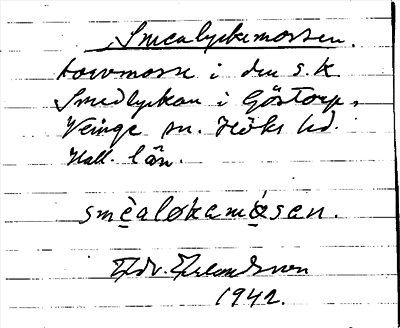 Smealyckemossen.
torvmosse i den s.k
Smedlyckan i Göstorp,
Veinge sn. Höks hd.
Hall. län.
smèaløkamósen.
Edv.
1942.